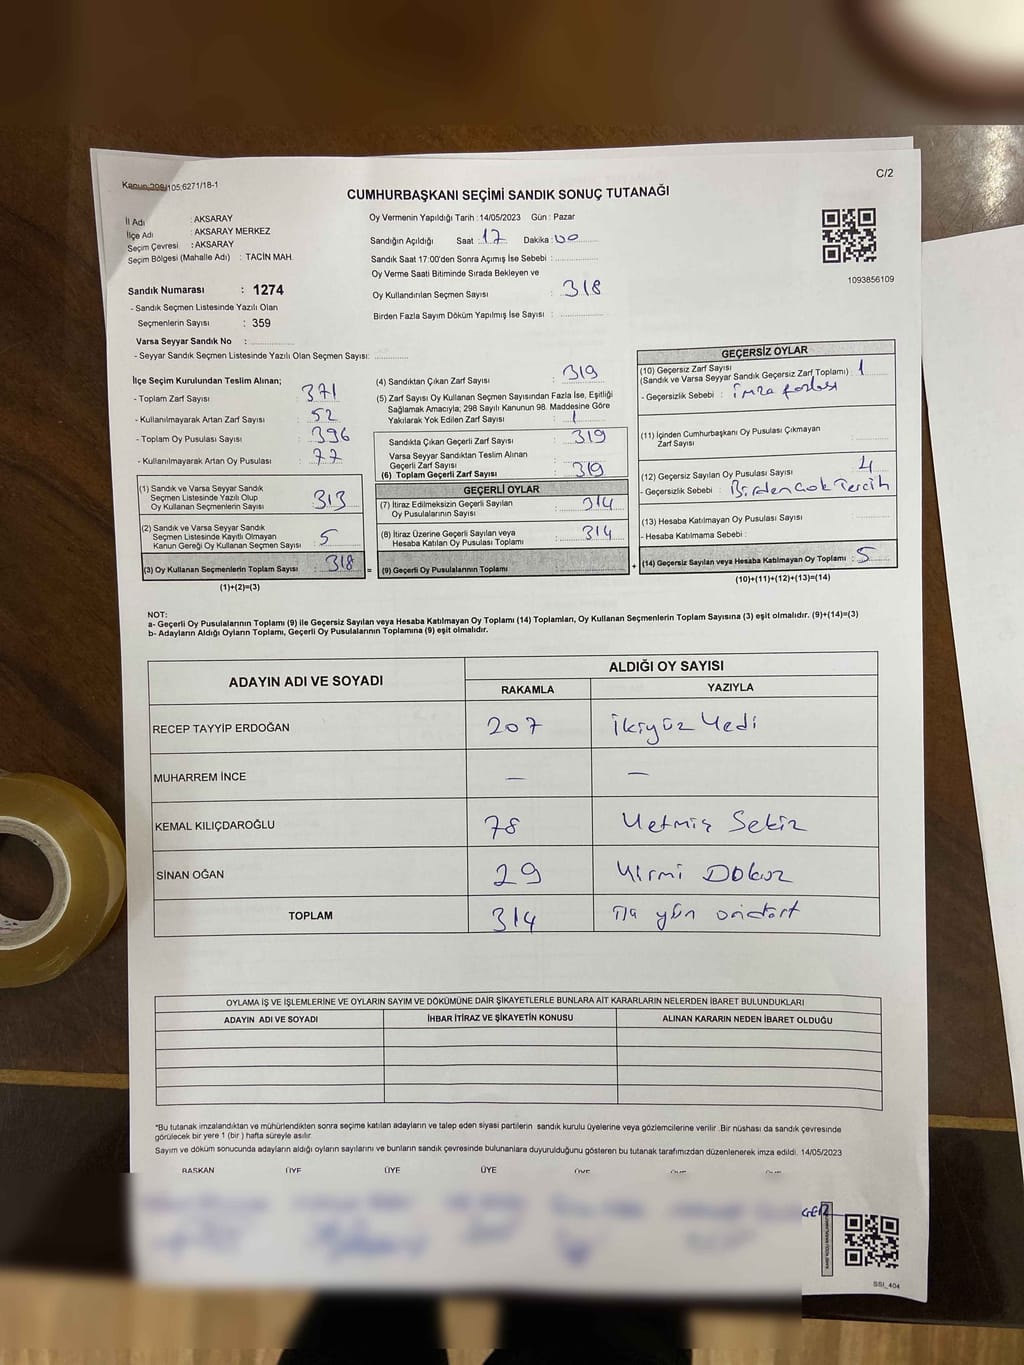 Kanun 298/105,6271/18-1
C/2
CUMHURBAŞKANI SEÇİMİ SANDIK SONUÇ TUTANAĞI
İl Adı : AKSARAY
İlçe Adı : AKSARAY MERKEZ
Seçim Çevresi : AKSARAY
Seçim Bölgesi (Mahalle Adı) : TACİN MAH.
Sandık Numarası : 1274
- Sandık Seçmen Listesinde Yazılı Olan
Seçmenlerin Sayısı : 359
Varsa Seyyar Sandık No :
- Seyyar Sandık Seçmen Listesinde Yazılı Olan Seçmen Sayısı:
Oy Vermenin Yapıldığı Tarih : 14/05/2023 Gün : Pazar
Sandığın Açıldığı Saat : 17 Dakika : 00
Sandık Saat 17:00'den Sonra Açımış İse Sebebi :
Oy Verme Saati Bitiminde Sırada Bekleyen ve
Oy Kullandırılan Seçmen Sayısı : 318
Birden Fazla Sayım Döküm Yapılmış İse Sayısı :
1093856109
İlçe Seçim Kurulundan Teslim Alınan;
- Toplam Zarf Sayısı : 371
- Kullanılmayarak Artan Zarf Sayısı : 52
- Toplam Oy Pusulası Sayısı : 396
- Kullanılmayarak Artan Oy Pusulası : 77
(1) Sandık ve Varsa Seyyar Sandık
Seçmen Listesinde Yazılı Olup
Oy Kullanan Seçmenlerin Sayısı : 313
(2) Sandık ve Varsa Seyyar Sandık
Seçmen Listesinde Kayıtlı Olmayan
Kanun Gereği Oy Kullanan Seçmen Sayısı : 5
(3) Oy Kullanan Seçmenlerin Toplam Sayısı : 318
(1)+(2)=(3)
(4) Sandıktan Çıkan Zarf Sayısı : 319
(5) Zarf Sayısı Oy Kullanan Seçmen Sayısından Fazla İse, Eşitliği
Sağlamak Amacıyla; 298 Sayılı Kanunun 98. Maddesine Göre
Yakılarak Yok Edilen Zarf Sayısı : 1
Sandıkta Çıkan Geçerli Zarf Sayısı : 319
Varsa Seyyar Sandıktan Teslim Alınan
Geçerli Zarf Sayısı :
(6) Toplam Geçerli Zarf Sayısı : 319
GEÇERLİ OYLAR
(7) İtiraz Edilmeksizin Geçerli Sayılan
Oy Pusulalarının Sayısı : 314
(8) İtiraz Üzerine Geçerli Sayılan veya
Hesaba Katılan Oy Pusulası Toplamı : 314
= (9) Geçerli Oy Pusulalarının Toplamı :
GEÇERSİZ OYLAR
(10) Geçersiz Zarf Sayısı
(Sandık ve Varsa Seyyar Sandık Geçersiz Zarf Toplamı) : 1
- Geçersizlik Sebebi : imza fazlası
(11) İçinden Cumhurbaşkanı Oy Pusulası Çıkmayan
Zarf Sayısı :
(12) Geçersiz Sayılan Oy Pusulası Sayısı : 4
- Geçersizlik Sebebi : Birden Çok Tercih
(13) Hesaba Katılmayan Oy Pusulası Sayısı :
- Hesaba Katılmama Sebebi :
+ (14) Geçersiz Sayılan veya Hesaba Katılmayan Oy Toplamı : 5
(10)+(11)+(12)+(13)=(14)
NOT:
a- Geçerli Oy Pusulalarının Toplamı (9) ile Geçersiz Sayılan veya Hesaba Katılmayan Oy Toplamı (14) Toplamları, Oy Kullanan Seçmenlerin Toplam Sayısına (3) eşit olmalıdır. (9)+(14)=(3)
b- Adayların Aldığı Oyların Toplamı, Geçerli Oy Pusulalarının Toplamına (9) eşit olmalıdır.
ADAYIN ADI VE SOYADI ALDIĞI OY SAYISI
RAKAMLA YAZIYLA
RECEP TAYYİP ERDOĞAN 207 İkiyüz Yedi
MUHARREM İNCE — —
KEMAL KILIÇDAROĞLU 78 Yetmiş Sekiz
SİNAN OĞAN 29 Yirmi Dokuz
TOPLAM 314
OYLAMA İŞ VE İŞLEMLERİNE VE OYLARIN SAYIM VE DÖKÜMÜNE DAİR ŞİKAYETLERLE BUNLARA AİT KARARLARIN NELERDEN İBARET BULUNDUKLARI
ADAYIN ADI VE SOYADI İHBAR İTİRAZ VE ŞİKAYETİN KONUSU ALINAN KARARIN NEDEN İBARET OLDUĞU
*Bu tutanak imzalandıktan ve mühürlendikten sonra seçime katılan adayların ve talep eden siyasi partilerin sandık kurulu üyelerine veya gözlemcilerine verilir. Bir nüshası da sandık çevresinde
görülecek bir yere 1 (bir ) hafta süreyle asılır.
Sayım ve döküm sonucunda adayların aldığı oyların sayılarını ve bunların sandık çevresinde bulunanlara duyurulduğunu gösteren bu tutanak tarafımızdan düzenlenerek imza edildi. 14/05/2023
BAŞKAN ÜYE ÜYE ÜYE ÜYE ÜYE ÜYE
SSI_404